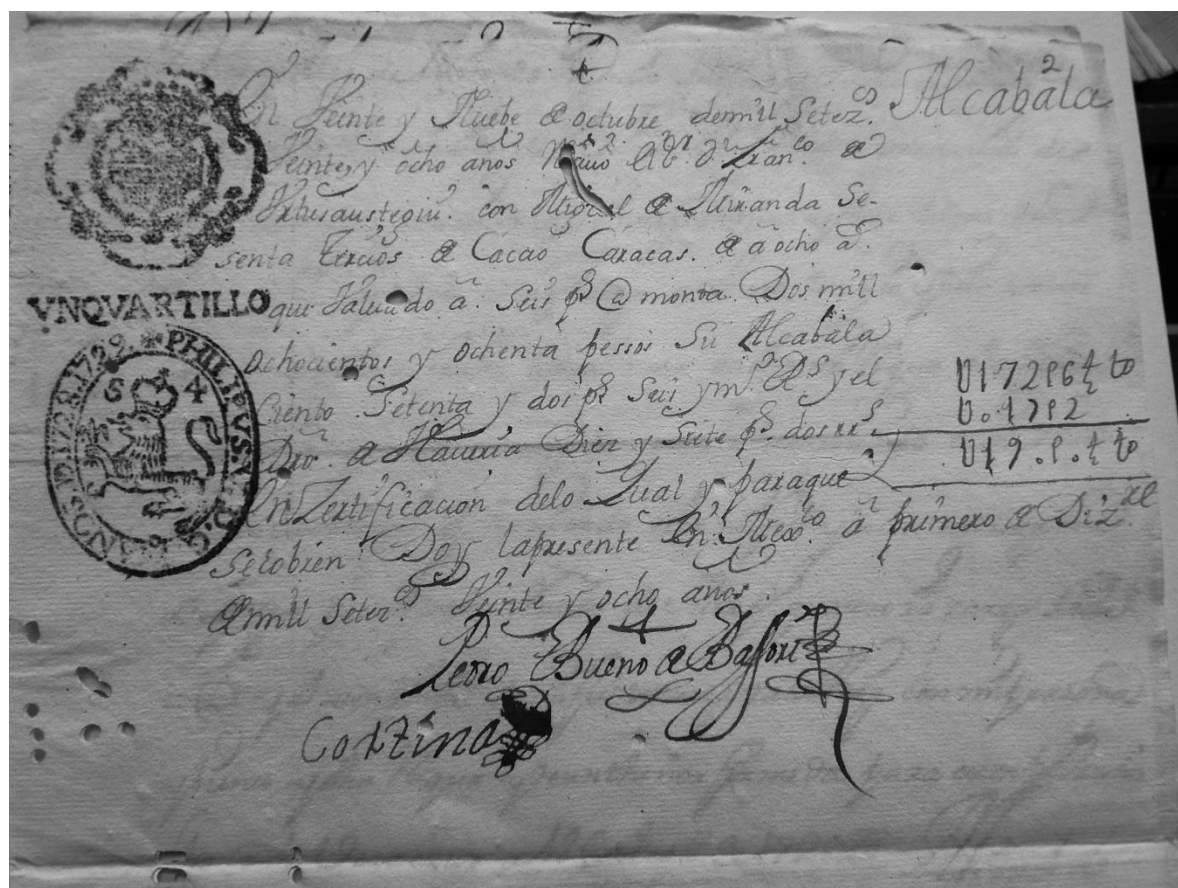 2
Alcabala
En Veinte y Nuebe de octubre demill Setez.os
Veinte, y ocho años
con Miguel de Miranda Se-
senta tercios de Cacao Caracas. de a ocho @.
que Valuado â. Seis ps @ monta. Dos mill
ochocientos y ochenta pessos Su Alcabala
Ciento Setenta y dos ps Seis y m.o Rs y el
Dro. de Haueria Diez y Siete ps. dos rrs
En Zertificacion delo Qual y paraque
Selobien Doy lapresente En. Mexco. â primero de Dizre
demill Setez.os Veinte y ocho anos.
Pedro Bueno de
Cortina
VNQVARTILLO
PHILIPVS.V.D.G.
ANOS.D.1728.1729.
6 4